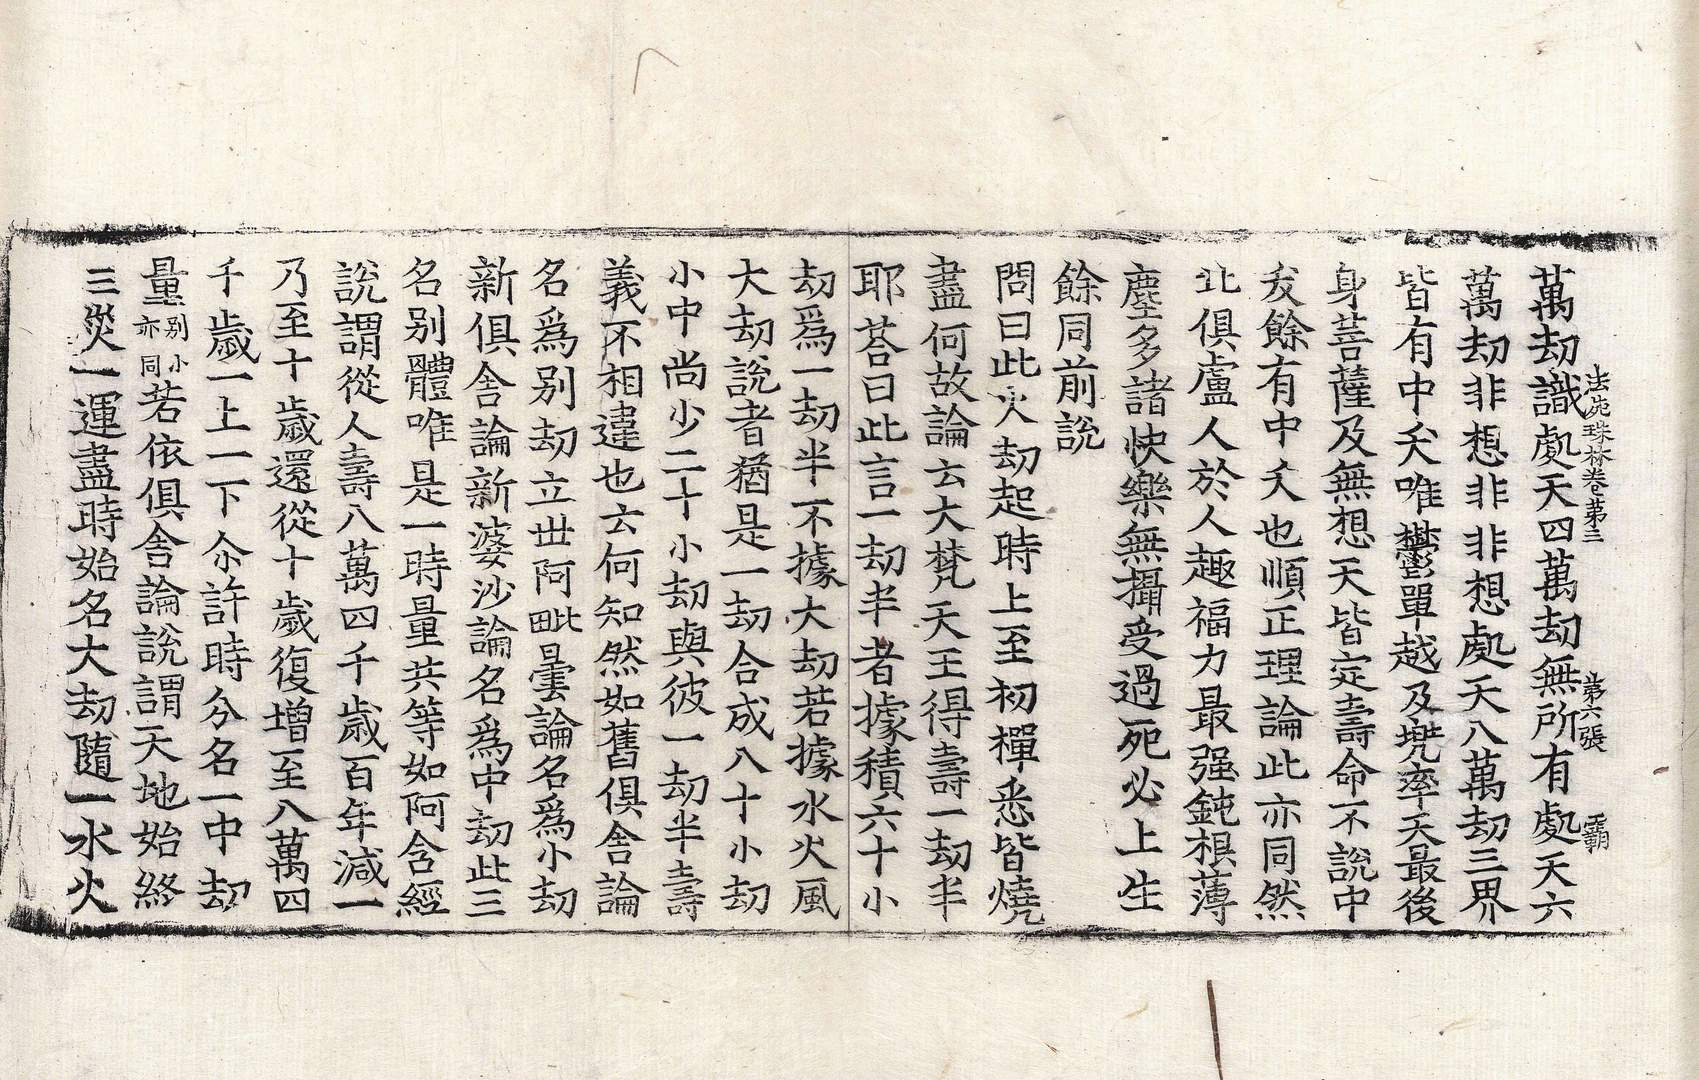 法苑珠林卷苐三 苐六張 覇
萬劫識處天四萬劫無所有處天六
萬劫非想非非想處天八萬劫三界
皆有中夭唯鬱單越及兠率天最後
身菩薩及無想天皆定壽命不說中
夭餘有中夭也順正理論此亦同然
北俱盧人於人趣福力最强鈍根薄
塵多諸快樂無攝受過死必上生
餘同前說
問曰此火劫起時上至初禪悉皆燒
盡何故論云大梵天王得壽一劫半
耶荅曰此言一劫半者據積六十小
劫爲一劫半不據大劫若據水火風
大劫說者猶是一劫合成八十小劫
小中尚少二十小劫與彼一劫半壽
義不相違也云何知然如舊俱舍論
名爲别劫立世阿毗曇論名爲小劫
新俱舍論新婆沙論名爲中劫此三
名别體唯是一時量共等如阿含經
說謂從人壽八萬四千歲百年減一
乃至十歲還從十歲復增至八萬四
千歲一上一下尒許時分名一中劫
量别小亦同若依俱舍論說謂天地始終
三災一運盡時始名大劫隨一水火